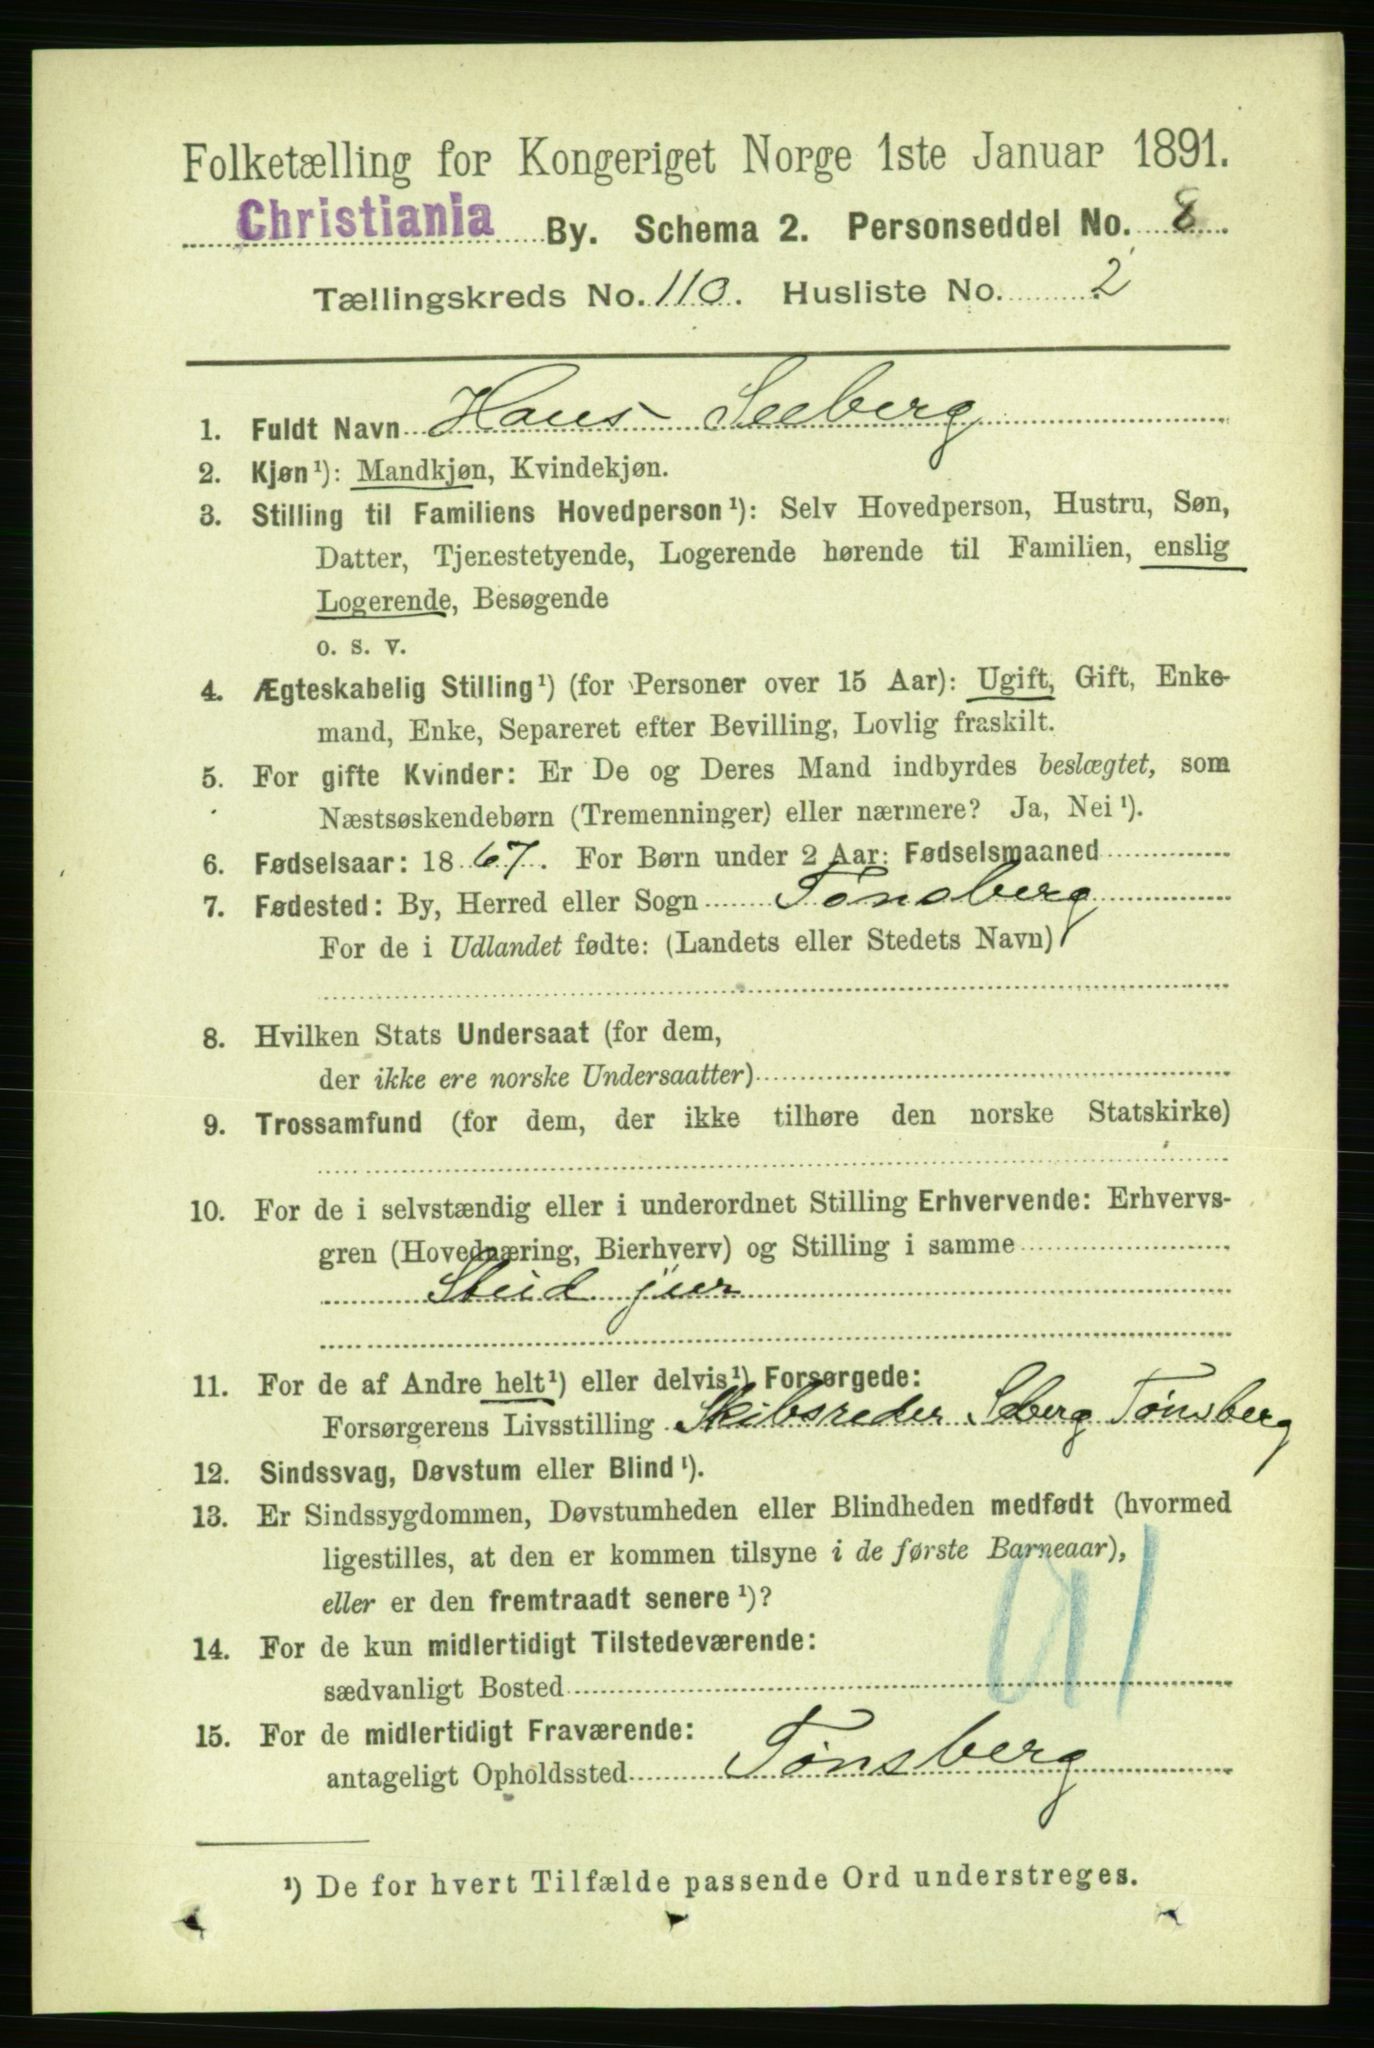 Folketælling for Kongeriget Norge 1ste Januar 1891.
Christiania By. Schema 2. Personseddel No. 8.
Tællingskreds No. 110. Husliste No. 2
1. Fuldt Navn Hans Seeberg
2. Kjøn¹): Mandkjøn, Kvindekjøn.
3. Stilling til Familiens Hovedperson¹): Selv Hovedperson, Hustru, Søn,
Datter, Tjenestetyende, Logerende hørende til Familien, enslig
Logerende, Besøgende
o. s. v.
4. Ægteskabelig Stilling¹) (for Personer over 15 Aar): Ugift, Gift, Enke-
mand, Enke, Separeret efter Bevilling, Lovlig fraskilt.
5. For gifte Kvinder: Er De og Deres Mand indbyrdes beslægtet, som
Næstsøskendebørn (Tremenninger) eller nærmere? Ja, Nei¹).
6. Fødselsaar: 1867. For Børn under 2 Aar: Fødselsmaaned
7. Fødested: By, Herred eller Sogn Tønsberg
For de i Udlandet fødte: (Landets eller Stedets Navn)
8. Hvilken Stats Undersaat (for dem,
der ikke ere norske Undersaatter)
9. Trossamfund (for dem, der ikke tilhøre den norske Statskirke)
10. For de i selvstændig eller i underordnet Stilling Erhvervende: Erhvervs-
gren (Hovednæring, Bierhverv) og Stilling i samme
Stud jur
11. For de af Andre helt¹) eller delvis¹) Forsørgede:
Forsørgerens Livsstilling Skibsreder Seberg Tønsberg
12. Sindssvag, Døvstum eller Blind¹).
13. Er Sindssygdommen, Døvstumheden eller Blindheden medfødt (hvormed
ligestilles, at den er kommen tilsyne i de første Barneaar),
eller er den fremtraadt senere¹)?
14. For de kun midlertidigt Tilstedeværende:
sædvanligt Bosted
15. For de midlertidigt Fraværende:
antageligt Opholdssted Tønsberg
¹) De for hvert Tilfælde passende Ord understreges.